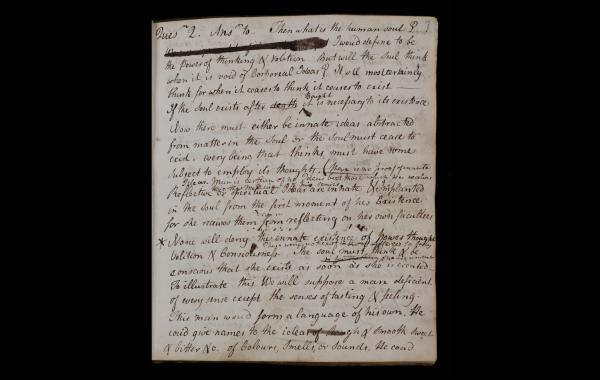 Ques.n 2. Ans.r to Then what is the human soul?
I wou'd define to be
the power of thinking & volition But will the Soul think
when it is void of Corporeal Ideas? It will most certainly
think for when it ceases to think it ceases to exist —
If the soul exists after death it is necessary to its existence
Thought
Now there must either be innate ideas abstracted
from matter in the Soul or the Soul must cease to
exist. every being that thinks must have some
subject to employ its thoughts. (there is no proof of innate
Ideas. Man is certain of no Ideas but those which he receives
Reflective or Spiritual Ideas are innate & Implanted
in the soul from the first moment of her Existence
for she receives them from reflecting on her own faculties
* None will deny the innate existence of powers thought
Volition & Consciousness The soul must think & be
conscious that she exists as soon as she is created
To illustrate this We will suppose a man deficient
of every sense except the senses of tasting & feeling.
This man would form a language of his own. He
coud give names to the ideas of & smooth sweet
& bitter &c. of Colours, Smells, or Sounds. He coud